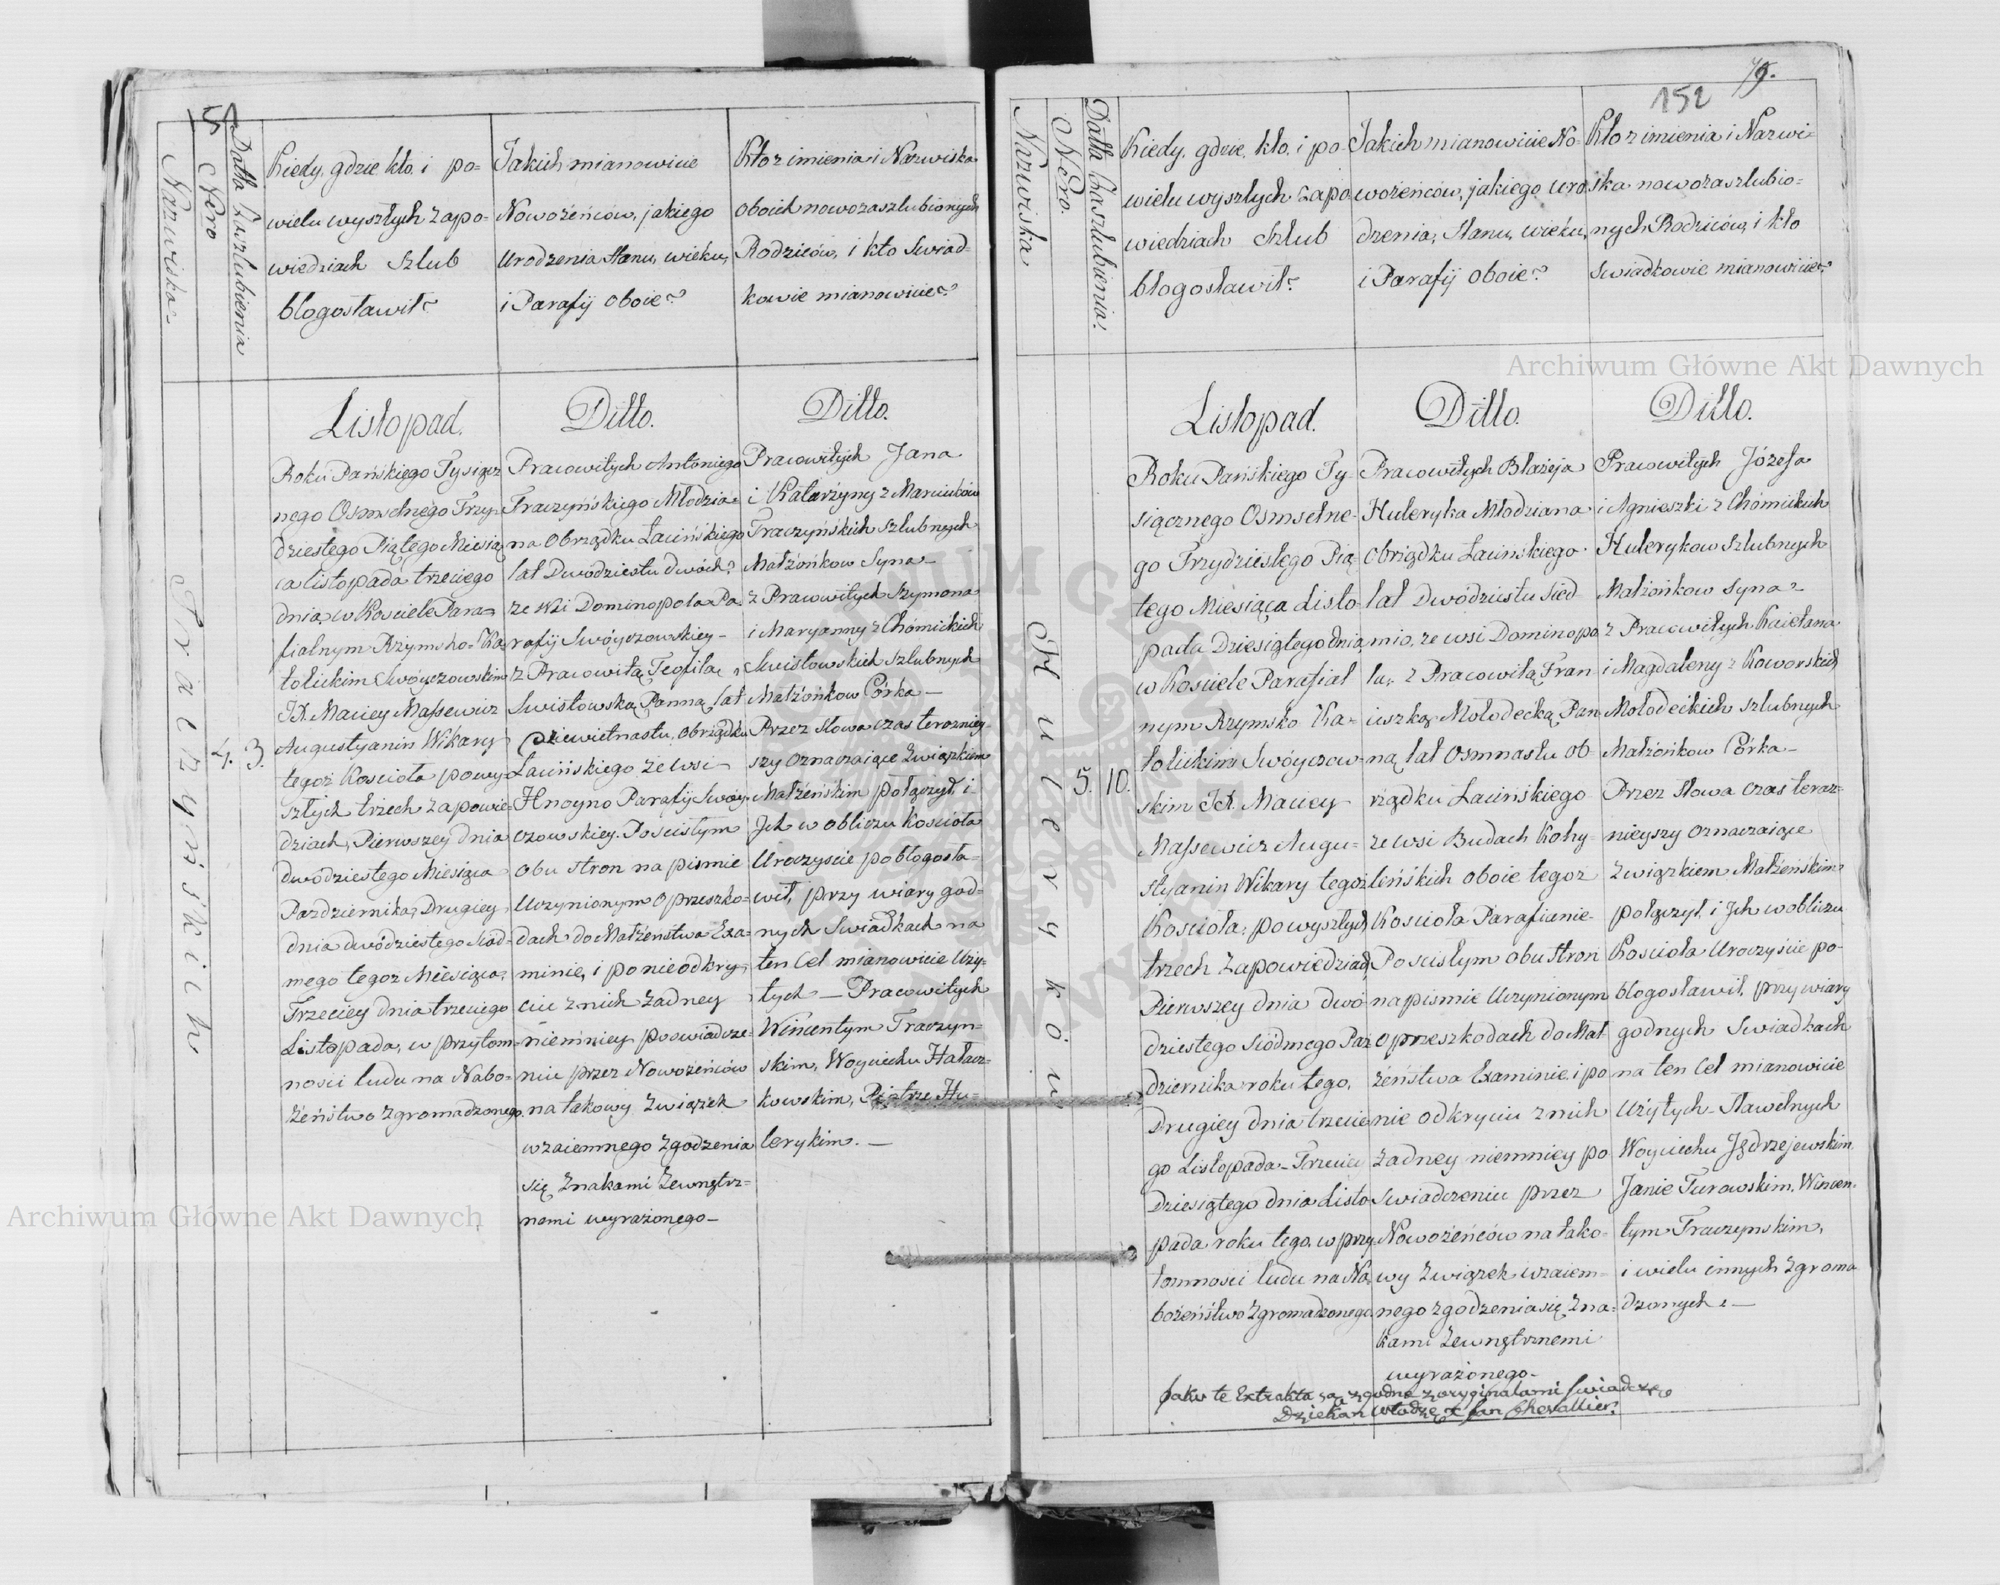 Nazwiska
Nro
Datta Zaszlubienia
Kiedy, gdzie kto, i po-
wielu wyszłych zapo-
wiedziach Szlub
błogosławił?
Jakich mianowicie
Nowożeńców, jakiego
Urodzenia Stanu, wieku,
i Parafij oboie?
Kto z imienia i Nazwiska
oboich nowozaszlubionych
Rodziców, i kto Swiad-
kowie mianowicie?
Traczyńskich
4. 3.
Listopad.
Roku Pańskiego Tysiącz
nego Osmsetnego Trzy-
dziestego Piątego Miesią
ca listopada trzeciego
dnia, w Kosciele Para-
fialnym Rzymsko-Ka
tolickim Swóyczowskim
JX. Maciey Massewicz
Augustyanin Wikary
tegoż Koscioła powy-
szłych trzech zapowie
dziach, Pierwszey dnia
dwódziestego Miesiąca
Pazdziernika, Drugiey
dnia dwódziestego Siód-
mego tegoz Miesiąca,
Trzeciey dnia trzeciego
Listopada, w przytom-
nosci ludu na Nabo-
żeństwo zgromadzonego
Ditto.
Pracowitych Antoniego
Traczyńskiego Młodzia-
na Obrządku Łacińskiego
lat Dwodziestu dwóch?
ze Wsi Dominopola Pa
rafij Swóyczowskiey-
z Pracowitą Teofilą
Swistowską Panną lat
Dziewietnastu, obrządku
Łacińskiego ze wsi
Hnoyno Parafij Swóy-
czowskiey. Poscistym
obu stron na pismie
Uczynionym o przeszko-
dach do Małżeństwa Exa-
minie, i po nieodkry-
ciu z nich żadney
niemniey poswiadcze-
niu przez Nowożeńców
na takowy związek
wzaiemnego zgodzenia
się Znakami Zewnętrz-
nemi wyrażonego-
Ditto.
Pracowitych Jana
i Katarzyny z Marciuków
Traczyńskich szlubnych
Małżonkow Syna-
z Pracowitych Szymona
i Maryanny z Chómickich
Swistowskich szlubnych
Małżonkow Córka-
Przez Słowa czas terazniey-
szy oznaczaiące Związkiem
Małżeńskim połączył i
Jch w obliczu Kościoła
Uroczyscie pobłogosła-
wił, przy wiary god-
nych Swiadkach na
ten Cel mianowicie Uży-
tych - Pracowitych
Wincentym Traczyn-
skim, Woyciechu Hałacz-
kowskim, Piętrze Hu-
lerykim. -
152
79.
Nazwiska
Nro.
Datta Zaszlubienia.
Kiedy, gdzie, kto, i po-
wielu wyszłych zapo
wiedziach Szlub
błogosławił?
Jakich mianowicie No-
wożeńców, jakiego uro
dzenia, Stanu, wieku,
i Parafij oboie?
Kto z imienia i Nazwi-
ska nowozaszlubio-
nych Rodziców, i kto
Swiadkowie mianowicie?
Huleryków
5. 10.
Listopad.
Roku Pańskiego Ty-
siącznego Osmsetne-
go Trzydziestego Pią
tego Miesiąca Listo-
pada Dziesiątego dnia
w Kosciele Parafial
nym Rzymsko Ka-
tolickim Swóyczow-
skim JX. Maciey
Massewicz Augu-
styanin Wikary tegoż
Koscioła; po wyszłych
trzech Zapowiedziach
Pierwszey dnia dwó
dziestego Siódmego Paź
dziernika roku tego,
Drugiey dnia trzecie
go Listopada - Trzeciey
Dziesiątego dnia Listo
pada roku tego, w przy
tomnosci ludu na Na
bożeństwo zgromadzonego
Ditto.
Pracowitych Błażeja
Huleryka Młodziana
Obrządku Łacińskiego
lat Dwódziestu Sied
mio, ze wsi Dominopo
lu, z Pracowitą Fran
ciszką Mołodecką Pan
ną lat Osmnastu ob
rządku Łacińskiego
ze wsi Budach Kohy-
leńskich oboie tegoz
Koscioła Parafianie-
Poscistym obu stron
na pismie Uczynionym
o przeszkodach do Mał
żeństwa Examinie, i po
nie odkryciu z nich
żadney niemniey po
swiadczeniu przez
Nowożeńców na tako-
wy Związek wzaiem-
nego zgodzenia się Zna-
kami Zewnętrznemi
wyrażonego-
Ditto.
Pracowitych Józefa
i Agnieszki z Chómickich
Hulerykow Szlubnych
Małżonkow Syna-
z Pracowitych Kaietana
i Magdaleny z Koworskich
Mołodeckich szlubnych
Małżonkow Córka-
Przez Słowa czas teraz-
nieyszy oznaczaiące
Związkiem Małżeńskim
połączył, i Jch w obliczu
Koscioła Uroczyscie po-
błogosławił, przy wiary
godnych Swiadkach
na ten Cel mianowicie
Użytych - Sławetnych
Woyciechu Jędrzejewskim
Janie Turowskim, Wincen-
tym Traczynskim,
i wielu innych zgroma
dzonych. -
Jako te Extrakta są zgodne z oryginałami Swiadczę
Dziekan Włodz: X Jan Chevallier.
Archiwum Główne Akt Dawnych
Archiwum Główne Akt Dawnych